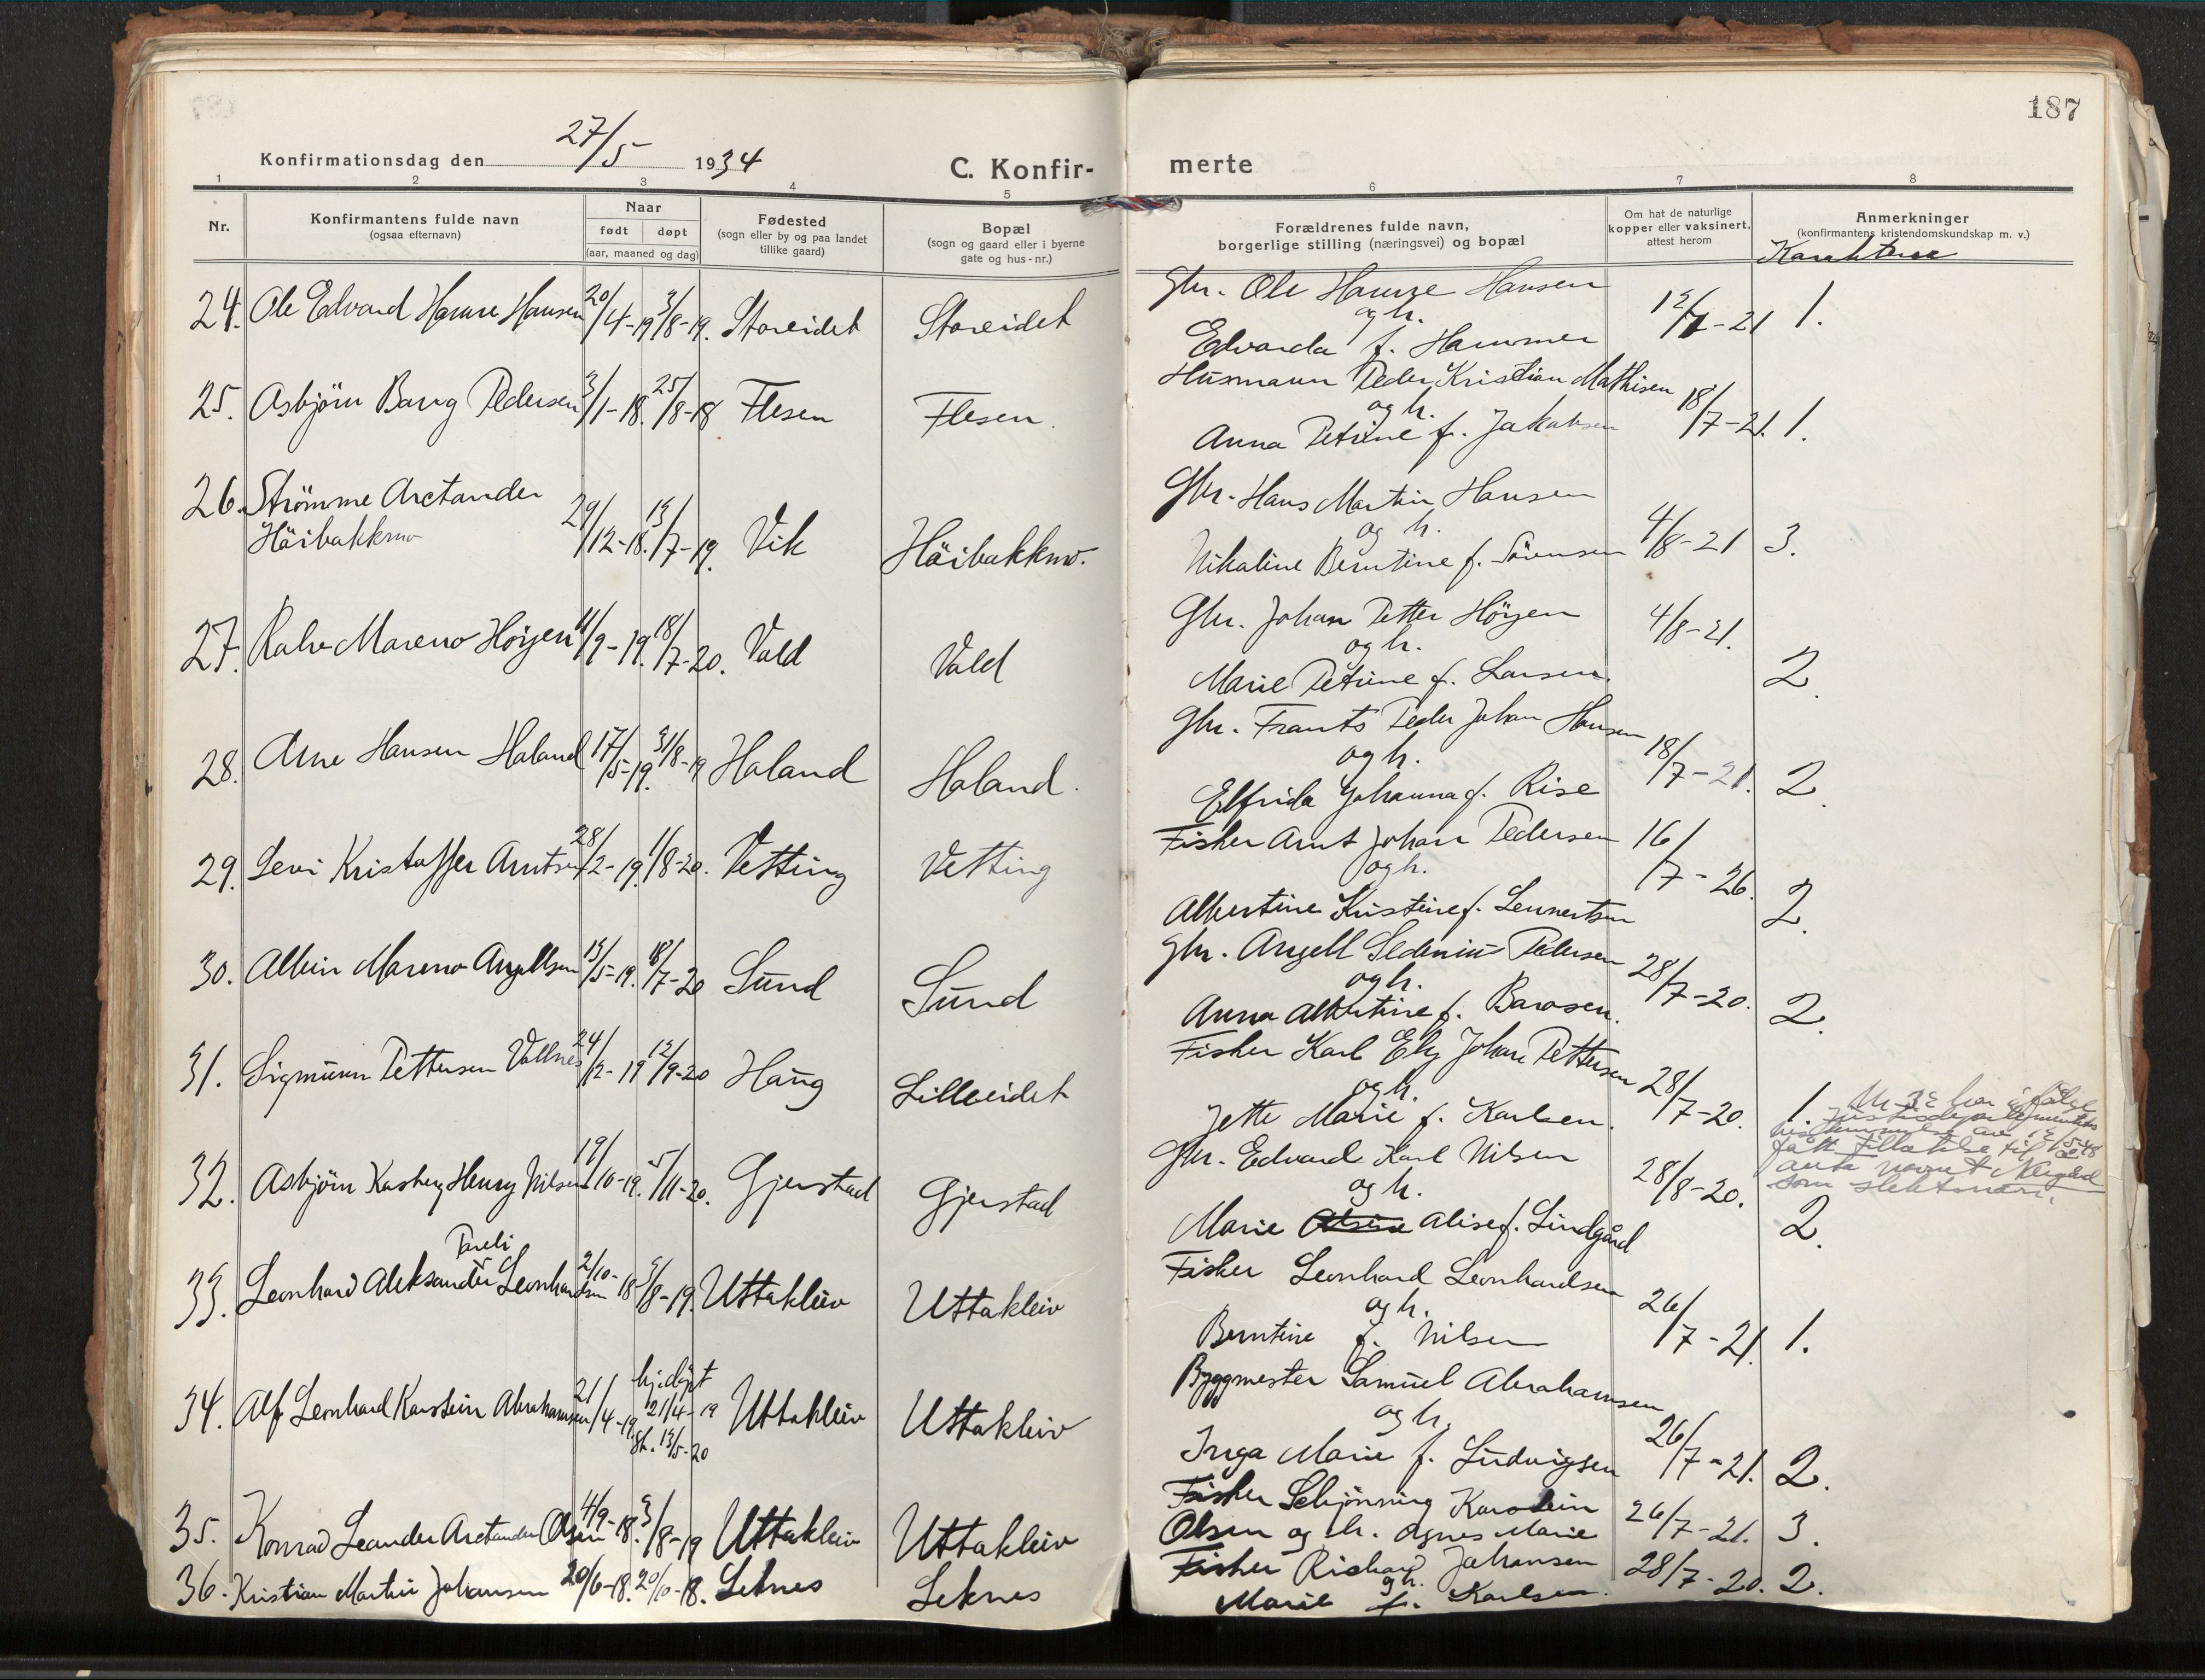 187
Konfirmationsdag den 27/5 1934
C. Konfir-
merte
1 2 3 4 5 6 7 8
Nr.
Konfirmantens fulde navn
(ogsaa efternavn)
Naar
født døpt
(aar, maaned og dag)
Fødested
(sogn eller by og paa landet
tillike gaard)
Bopæl
(sogn og gaard eller i byerne
gate og hus-nr.)
Forældrenes fulde navn,
borgerlige stilling (næringsvei) og bopæl
Om hat de naturlige
kopper eller vaksinert,
attest herom
Anmerkninger
(konfirmantens kristendomskundskap m. v.)
24. Ole Edvard Hansen 20/4-19 3/8-19. Storeidet Storeidet
Gbr. Ole Hansen
og h.
Edvarda f. Hammer
-21 1.
25. Asbjörn Bang Pedersen 3/1-18. 25/8-18 Flesen Flesen.
Husmann Peder Kristian Mathisen
og h.
Anna Petrine f. Jakobsen
18/7-21. 1.
26. Strömme Arctander
Höibakkmo
29/12-18. 13/7-19. Vik Höibakkmo.
Gbr. Hans Martin Hansen
og h.
Nikoline Berntine f. Sörensen
4/8-21 3.
27. Mareno Höyen 11/9-19. 18/7-20. Vold Vold
Gbr. Johan Petter Höyen
og h.
Marie Petrine f. Larsen.
4/8-21. 2.
28. Arne Hansen Holand 17/5-19. 31/8-19 Holand Holand.
Gbr. Frants Peder Johan Hansen
og h.
Elfrida Johanna f. Rise
18/7-21. 2.
29. Levi Kristoffer Arntsen 28/2-19. 1/8-20. Vetting Vetting
Fisker Arnt Johan Pedersen
og h.
Albertine Kristine f. Lennertsen
16/7-26. 2.
30. Albin Mareno Angellsen 13/5-19. 18/7-20 Sund Sund
Gbr. Angell Sedenius Pedersen
og h.
Anna Albertine f.
28/7-20. 2.
31. Sigmunn Pettersen Vollnes 24/2-19 12/9-20 Haug Lilleeidet
Fisker Karl Johan Pettersen
og h.
Jette Marie f. Karlsen.
28/7-20. 1.
Nr 32 har i følge
Justisdepartementets
bestemmelse av
fått tillatelse til
navnet
som slektsnavn.
32. Asbjörn Kasberg Henry Nilsen 19/10-19. 5/11-20. Gjerstad Gjerstad
Gbr. Edvard Karl Nilsen
og h.
Marie Alise f. Lindgård
28/8-20. 2.
33. Leonhard Aleksander Pareli Leonhardsen 2/10-18 3/8-19. Uttakleiv Uttakleiv
Fisker Leonhard Leonhardsen
og h.
Berntine f. Nilsen
26/7-21. 1.
34. Alf Leonhard Karstein Abrahamsen 21/4-19. hj. døpt 21/4-19 st. 13/5-20 Uttakleiv Uttakleiv
Byggmester Samuel Abrahamsen
og h.
Inga Marie f. Ludvigsen
26/7-21. 2.
35. Konrad Leander Arctander Olsen 4/9-18. 3/8-19 Uttakleiv Uttakleiv
Fisker Schjönning Karstein
Olsen og h. Agnes Marie
26/7-21. 3.
36. Kristian Martin Johansen 20/6-18. 20/10-18. Leknes Leknes
Fisker Richard Johansen
og h.
Marie f. Karlsen.
28/7-20. 2.